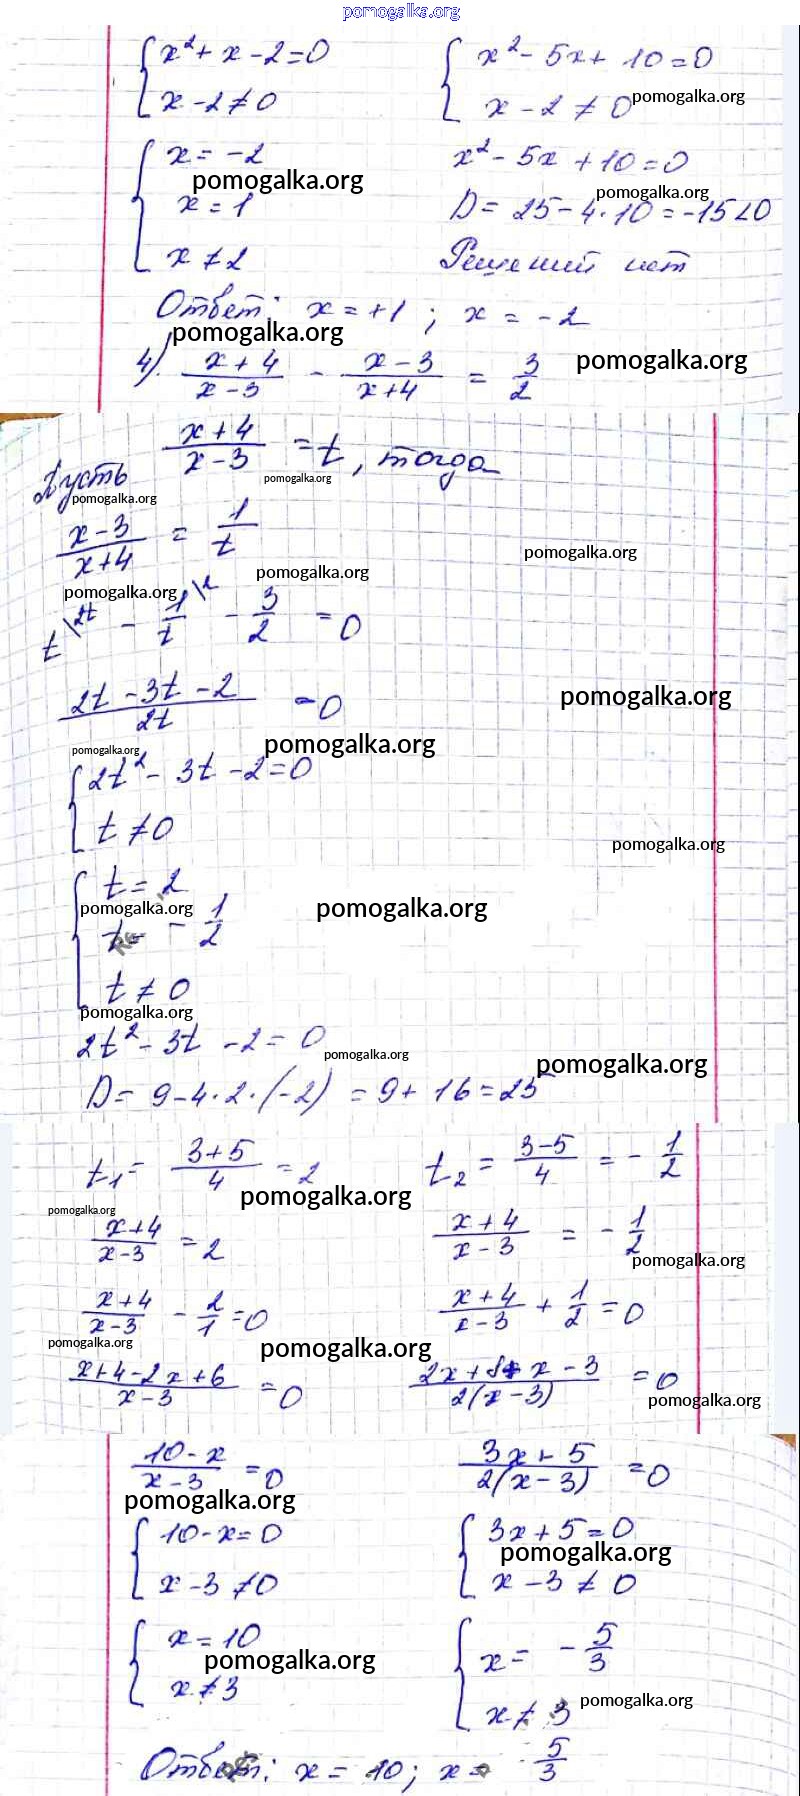 pomogalka.org
{ x² + x - 2 = 0    { x² - 5x + 10 = 0
x - 2 ≠ 0    x - 2 ≠ 0 pomogalka.org
{ x = -2    x² - 5x + 10 = 0
pomogalka.org    pomogalka.org
x = 1    D = 25 - 4·10 = -15 < 0
x ≠ 2    Решений нет
Ответ: x = +1 ; x = -2
pomogalka.org
4). (x + 4)/(x - 3) - (x - 3)/(x + 4) = 3/2 pomogalka.org
Пусть (x + 4)/(x - 3) = t, тогда
pomogalka.org    pomogalka.org
(x - 3)/(x + 4) = 1/t
pomogalka.org
pomogalka.org
pomogalka.org
t\2t - 1/t\2 - 3/2 = 0
(2t - 3t - 2)/2t = 0
pomogalka.org
pomogalka.org    pomogalka.org
{ 2t² - 3t - 2 = 0
t ≠ 0
pomogalka.org
{ t = 2
pomogalka.org    pomogalka.org
t = - 1/2
t ≠ 0
pomogalka.org
2t² - 3t - 2 = 0
pomogalka.org    pomogalka.org
D = 9 - 4·2·(-2) = 9 + 16 = 25
t₁ = (3 + 5)/4 = 2    t₂ = (3 - 5)/4 = - 1/2
pomogalka.org
pomogalka.org
(x + 4)/(x - 3) = 2    (x + 4)/(x - 3) = - 1/2
pomogalka.org
(x + 4)/(x - 3) - 2/1 = 0    (x + 4)/(x - 3) + 1/2 = 0
pomogalka.org    pomogalka.org
(x + 4 - 2x + 6)/(x - 3) = 0    (2x + 8 + x - 3)/2(x - 3) = 0
pomogalka.org
(10 - x)/(x - 3) = 0    (3x + 5)/2(x - 3) = 0
pomogalka.org
{ 10 - x = 0    { 3x + 5 = 0
pomogalka.org
x - 3 ≠ 0    x - 3 ≠ 0
{ x = 10    { x = - 5/3
pomogalka.org
x ≠ 3    x ≠ 3 pomogalka.org
Ответ: x = 10; x = - 5/3